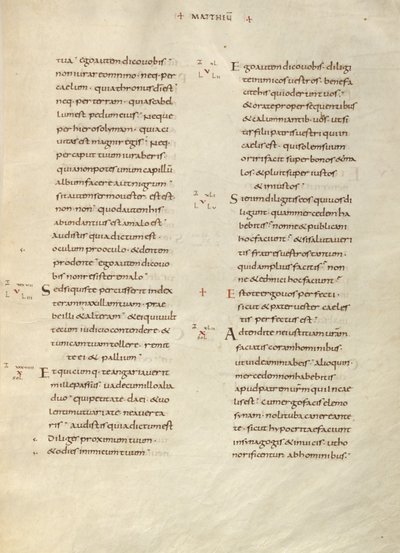 + MATTHEU +
tua. ego autem dico uobis
non iurare omnino neq. per
caelum. quia thronus di est
neq. per terram. quia scabel
lum est pedum eius. neque
per hierosolymam. quia ci
uitas est magni regis. neq.
per caput tuum iuraberis.
quia non potes unum capillu
album facere aut nigrum
sit autem sermo uester. est est
non non. quod autem his
abundantius est a malo est
audistis quia dictum est
oculum pro oculo. & dentem
pro dente. ego autem dico uo
bis non resistere malo
Sed si quis te percusserit in dex
teram maxillam tuam. prae
be illi & alteram. & ei qui uult
tecum iudicio contendere. &
tunicam tuam tollere. remit
te ei & pallium.
Et quicumq. te angariauerit
mille passus. uade cum illo alia
duo. qui petit a te. da ei. & uo
lenti mutuari a te. ne auerta
ris. audistis quia dictum est
Diliges proximum tuum.
& odies inimicum tuum.
Ego autem dico uobis. diligi
te inimicos uestros. benefa
cite his qui oderunt uos.
& orate pro persequentibus
& calumniantib. uos. ut si
tis filii patris uestri qui in
caelis est. qui solem suum
oriri facit super bonos & ma
los. & pluit super iustos
& iniustos.
Si enim diligitis eos qui uos di
ligunt. quam mercedem ha
bebitis. nonne & publicani
hoc faciunt. & si salutaueri
tis fratres uestros tantum.
quid amplius facitis. non
ne & ethnici hoc faciunt.
Estote ergo uos perfecti.
sicut & pater uester caeles
tis perfectus est.
Adtendite ne iustitiam uestram
faciatis coram hominibus.
ut uideamini ab eis. alioquin
mercedem non habebitis
apud patrem urm qui in cae
lis est. cum ergo facis elemo
synam. noli tuba canere ante
te. sicut hypocritae faciunt
in synagogis & in uicis. ut ho
norificentur ab hominibus.